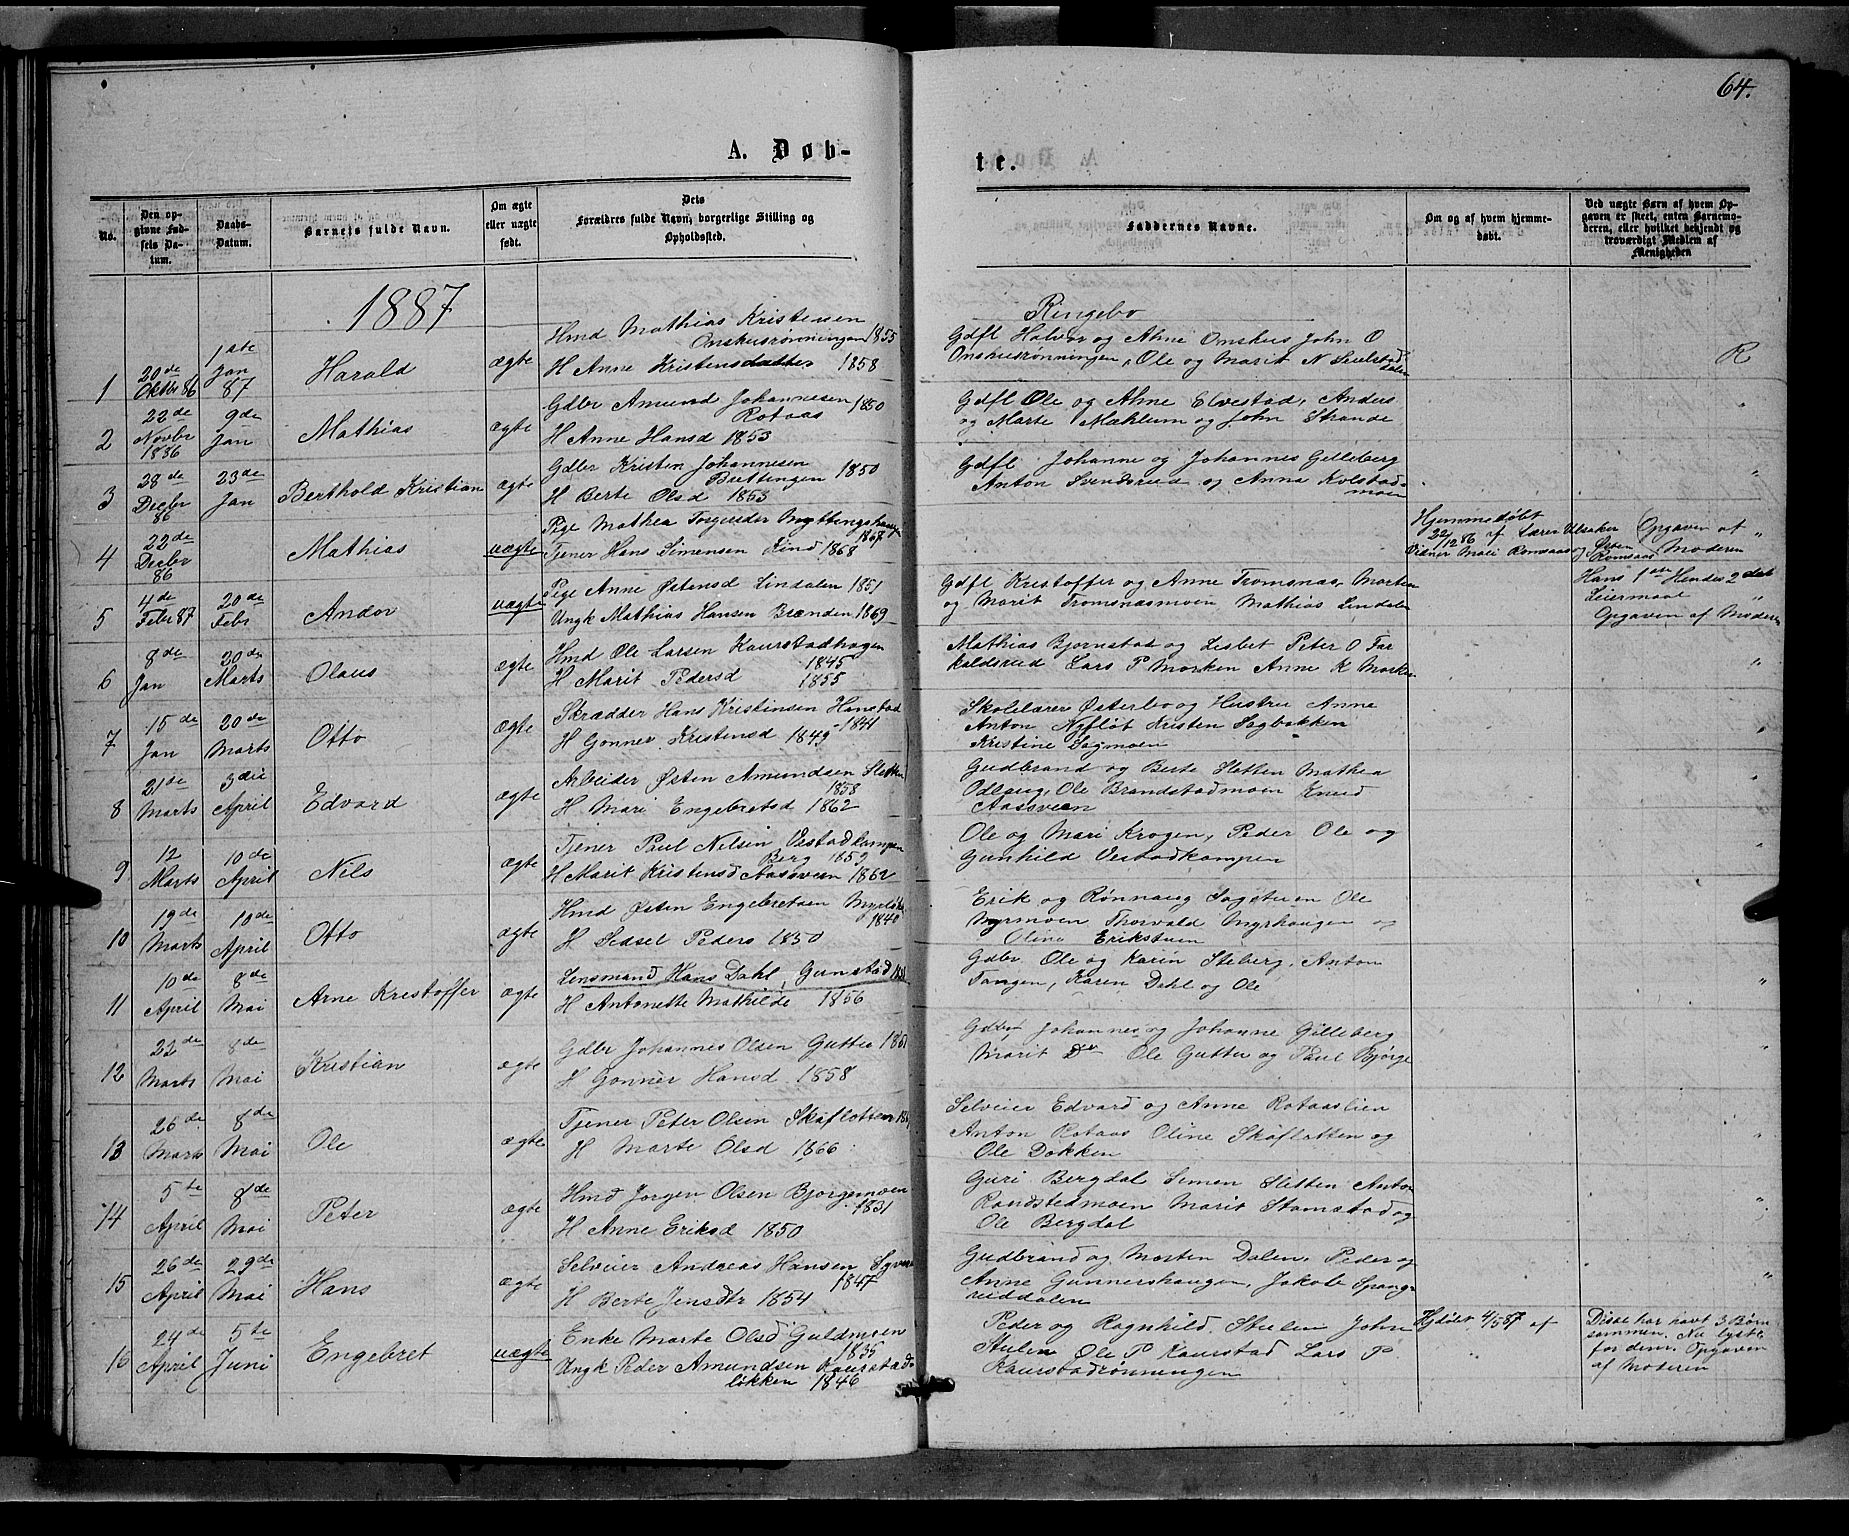 64.
A. Døb-
te.
No.
Den op-
givne Fød-
sels Da-
tum.
Daabs-
Datum.
Barnets fulde Navn.
Om ægte
eller uægte
født.
Dets
Forældres fulde Navn, borgerlige Stilling og
Opholdssted.
Faddernes Navne.
Om og af hvem hjemme-
døbt.
Ved uægte Børn af hvem Op-
gaven er skeet, enten Barnemo-
deren, eller hvilket bekjendt og
troværdigt Medlem af
Menigheden
1887
Ringebo
1
20de
Oktbr 86
1ste
Jan
87
Harald
ægte
Hmd Mathias Kristensen
Onshusrønningen 1855
H Anne Kristensdatter 1858
Gdfl Halvor og Ahne Onshus John O
Onshusrønningen, Ole og Marit N
dalen
R
2
22de
Novbr
1886
9de
Jan
Mathias
ægte
Gdbr Amund Johannesen 1850
Rotaas
H Anne Hansd 1853
Gdfl Ole og Ahne Elvestad, Anders
og Marte Mæhlum og John Strande
"
3
28de
Decbr
86
23de
Jan
Berthold Kristian
ægte
Gdbr Kristen Johannesen
Buttingen 1850
H Berte Olsd 1853
Gdfl Johanne og Johannes Gilleberg
Anton Svendsrud og Anna Kolstad-
moen
"
4
22de
Decbr
86
Mathias
uægte
Pige Mathea Torgersdr
1867
Tjener Hans Simensen Lind 1868
Hjemmedøbt
22/12 86 af Lærer Ulsaker
Vidner Mari Romsaas og Østen
Romsaas
Opgaven af
Moderen
"
5
4de
Febr 87
20de
Febr
Andor
uægte
Pige Anne Østensd Lindalen 1851
Ungk Mathias Hansen Brænden 1869
Gdfl Kristoffer og Anne Tromsnas, Morten
og Marit Tromsnæsmoen Mathias Lindalen
Hans 1ste Hendes 2det
Leiermaal
Opgaven af Moderen
"
6
8de
Jan
20de
Marts
Olaus
ægte
Hmd Ole Larsen Kaurstadhagen
1845
H Marit Pedersd 1855
Mathias Bjørnstad og Lisbet Peter O Far
kaldsrud Lars P Morken Anne K Morken
"
7
15de
Jan
20de
Marts
Otto
ægte
Skrædder Hans Kristinsen Hanstad
1841
H Gonner Kristensd 1849
Skolelærer Østerbo og Hustru Anne
Anton Nyfløt Kristen Sagbakken
Kristine Sagmoen
"
8
21de
Marts
3die
April
Edvard
ægte
Arbeider Østen Amundsen Sletten
1858
H Mari Engebretsd 1862
Gudbrand og Berte Sletten Mathea
Odlaug, Ole Brandstadmoen Knud
Aassveen
"
9
12
Marts
10de
April
Nils
ægte
Tjener Paul Nilsen Vestadkampen
Berg 1859
H Marit Kristensd Aassveen 1862
Ole og Mari Krogen, Peder Ole og
Gunhild Vestadkampen
"
10
19de
Marts
10de
April
Otto
ægte
Hmd Østen Engebretsen
1840
H Sidsel Peders 1850
Erik og Rønnaug Sagstuen Ole
Myrmoen Thorvald Myrhaugen og
Oline Erikstuen
11
10de
April
8de
Mai
Arne Kristoffer
ægte
Lensmand Hans Dahl, Gunstad
H Antonette Mathilde 1856
Gdbr Ole og Karin Steberg, Anton
Tangen, Karen Dahl og Ole
"
12
22de
Marts
8de
Mai
Kristian
ægte
Gdbr Johannes Olsen Guttu
H Gonner Hansd 1858
Gdbr Johannes og Johanne Gilleberg
Marit Do Ole Guttu og Paul Bjørge
"
13
26de
Marts
8de
Mai
Ole
ægte
Tjener Peter Olsen Skøfletten
H Marte Olsd 1866
Selveier Edvard og Anne Rotaaslien
Anton Rotaas Oline Skøflatten og
Ole Dokken
"
14
5te
April
8de
Mai
Peter
ægte
Hmd Jørgen Olsen Bjørgemoen
1831
H Anne Eriksd 1850
Guri Bergdal Simen Sletten Anton
Randstedmoen Marit Stamstad og
Ole Bergdal
"
15
26de
April
29de
Mai
Hans
ægte
Selveier Andreas Hansen
1847
H Berte Jensdtr 1854
Gudbrand og Morten Dalen, Peder og
Anne Gunnershaugen, Jakob Spang-
ruddalen
"
16
24de
April
5te
Juni
Engebret
uægte
Enke Marte Olsd Guldmoen
1835
Ungk Peder Amundsen Kaurstad-
løkken 1846
Peder og Ragnhild Stulen John
Stulen Ole P Kaurstad Lars P
Kaurstadrønningen
Hjdøbt 4/5 87 af
"
Disse har havt 3 Børn
sammen. Nu lyste
for dem. Opgaven
af Moderen